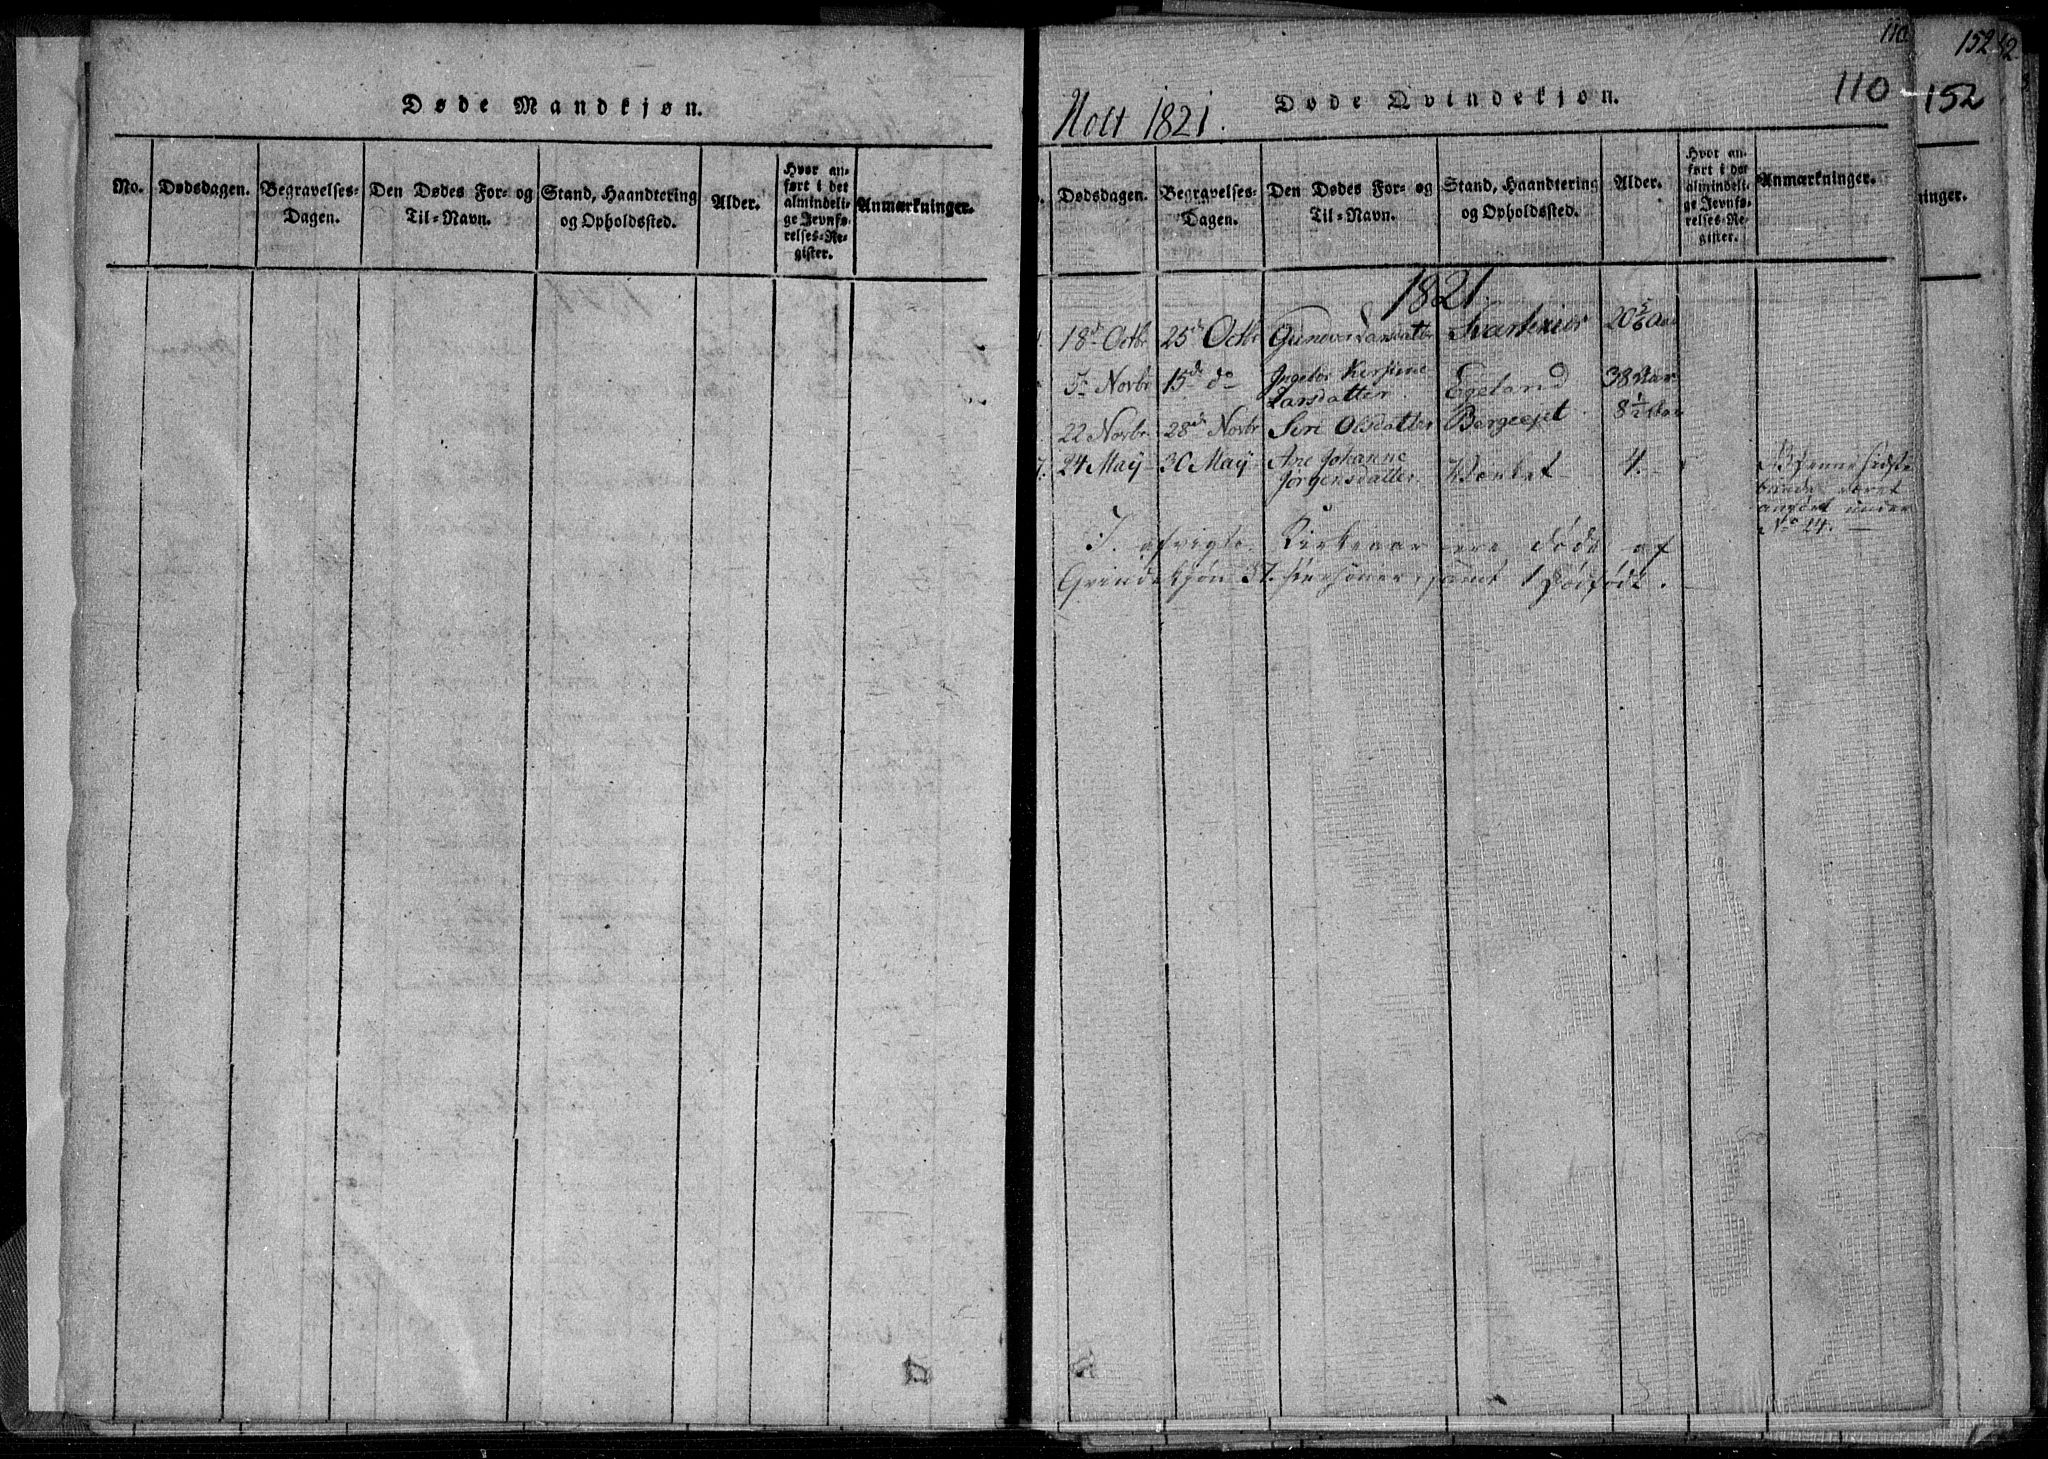 Døde Mandkjøn.
No.
Dødsdagen.
Begravelses-
Dagen.
Den Dødes For- og
Til-Navn.
Stand, Haandtering
og Opholdssted.
Alder.
Hvor an-
ført i det
almindeli-
ge Jevnfø-
relses-Re-
gister.
Anmærkninger.
110
152
110
152
Holt 1821.
Døde Qvindekjøn.
Dødsdagen.
Begravelses-
Dagen.
Den Dødes For- og
Til-Navn.
Stand, Haandtering
og Opholdssted.
Alder.
Hvor an-
ført i det
almindeli-
ge Jevnfø-
relses-Re-
gister.
Anmærkninger.
ninger.
1821.
18d Octbr 25d Octbr Gunvor Larsdatter
5 Novbr 15d do Ingebor Kirstine
Larsdatter. Egeland 38 Aar
22 Novbr 28d Novbr Siri Olsdatter 8 1/2 Aar
24 May 30 May Ane Johanne
Jørgensdatter 4.
NB denne sidste
burde været
anført under
No 14.
I øvrigt Kirkeaar ere døde af
Qvindekjøn 37 Personer, samt 1 Dødfødt.